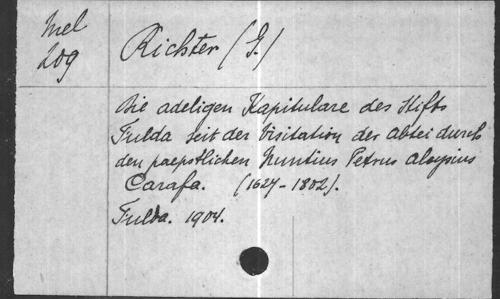 Mel
209
Richter (G.)
Die adeligen Kapitulare des Stifts
Fulda seit der Visitation der Abtei durch
den paepstlichen Nuntius Petrus Aloysius
Carafa. (1627-1802).
Fulda. 1904.